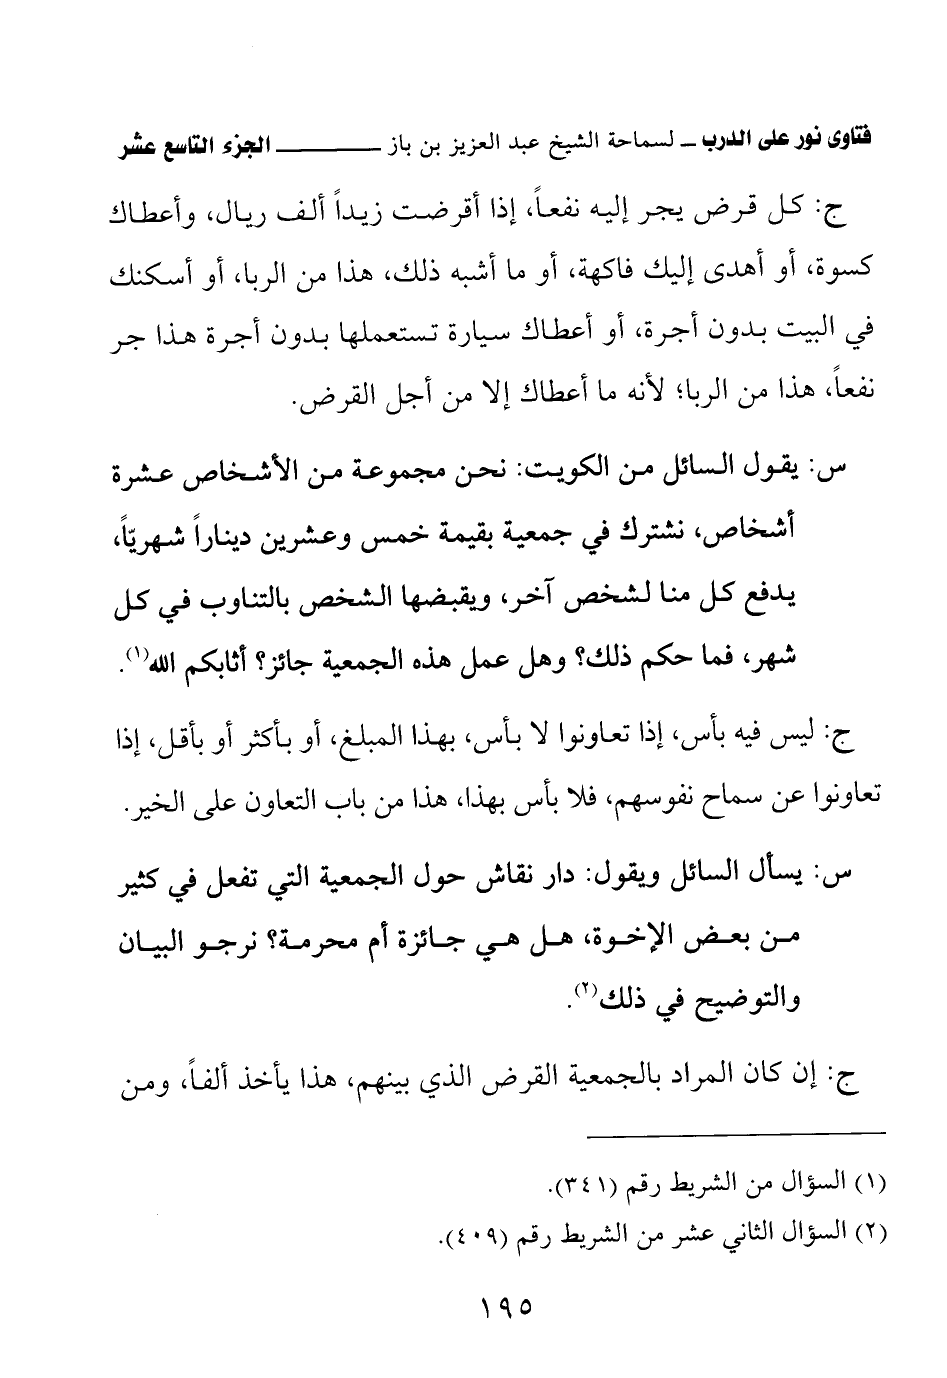 فتاوى نور على الدرب ــ لسماحة الشيخ عبد العزيز بن باز ــــــــــــ الجزء التاسع عشر
ج: كل قرض يجر إليه نفعاً، إذا أقرضت زيداً ألف ريال، وأعطاك
كسوة، أو أهدى إليك فاكهة، أو ما أشبه ذلك، هذا من الربا، أو أسكنك
في البيت بدون أجرة، أو أعطاك سيارة تستعملها بدون أجرة هذا جر
نفعاً، هذا من الربا؛ لأنه ما أعطاك إلا من أجل القرض.
س: يقول السائل من الكويت: نحن مجموعة من الأشخاص عشرة
أشخاص، نشترك في جمعية بقيمة خمس وعشرين ديناراً شهريّاً،
يدفع كل منا لشخص آخر، ويقبضها الشخص بالتناوب في كل
شهر، فما حكم ذلك؟ وهل عمل هذه الجمعية جائز؟ أثابكم الله(١).
ج: ليس فيه بأس، إذا تعاونوا لا بأس، بهذا المبلغ، أو بأكثر أو بأقل، إذا
تعاونوا عن سماح نفوسهم، فلا بأس بهذا، هذا من باب التعاون على الخير.
س: يسأل السائل ويقول: دار نقاش حول الجمعية التي تفعل في كثير
من بعض الإخوة، هل هي جائزة أم محرمة؟ نرجو البيان
والتوضيح في ذلك(٢).
ج: إن كان المراد بالجمعية القرض الذي بينهم، هذا يأخذ ألفاً، ومن
(١) السؤال من الشريط رقم (٣٤١).
(٢) السؤال الثاني عشر من الشريط رقم (٤٠٩).
١٩٥